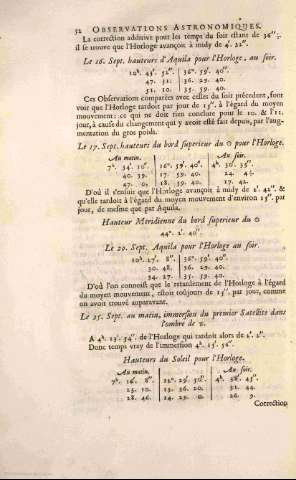 52 OBSERVATIONS ASTRONOMIQUES.
La correction additive pour les temps du soir estant de 36‴.
il se trouve que l'Horloge avançoit à midy de 4′. 22″.
Le 16. Sept. hauteurs d'Aquila pour l'Horloge, au soir.
10h. 43′. 52″. 36°. 59′. 40″.
47. 31. 36. 29. 40.
51. 10. 35. 59. 40.
Ces Observations comparées avec celles du soir précédent, font
voir que l'Horloge tardoit par jour de 15″. à l'égard du moyen
mouvement: ce qui ne doit rien conclure pour le 10. & l'11.
jour, à cause du changement qui y avoit esté fait depuis, par l'aug-
mentation du gros poids.
Le 17. Sept. hauteurs du bord superieur du ☉ pour l'Horloge.
Au matin. Au soir.
7h. 34′. 16″. 16°. 59′. 40″. 4h. 30′. 35″.
40. 39. 17. 59. 40. 24.
47. 05. 18. 59. 40. 17. 42.
D'où il s'ensuit que l'Horloge avançoit à midy de 2′. 42″. &
qu'elle tardoit à l'égard du moyen mouvement d'environ 15″. par
jour, de mesme que par Aquila.
Hauteur Méridienne du bord superieur du ☉
44°. 2′. 40″.
Le 20. Sept. Aquila pour l'Horloge au soir.
10h. 27′. 8″. 36°. 59′. 40″.
30. 48. 36. 29. 40.
34. 27. 35. 59. 40.
D'où l'on connoist que le retardement de l'Horloge à l'égard
du moyen mouvement, estoit toujours de 15″. par jour, comme
on avoit trouvé auparavant.
Le 25. Sept. au matin, immersion du premier Satellite dans
l'ombre de ♃.
A 4h. 13′. 54″. de l'Horloge qui tardoit alors de 2′. 2″.
Donc temps vray de l'immersion 4h. 15′. 56″.
Hauteurs du Soleil pour l'Horloge.
Au matin. Au soir.
7h. 16′. 8″. 12°. 29′. 4h. 38′. 45″.
22. 25. 13. 36. 20. 32. 44.
28. 46. 14. 29. 26. 9.
Correction